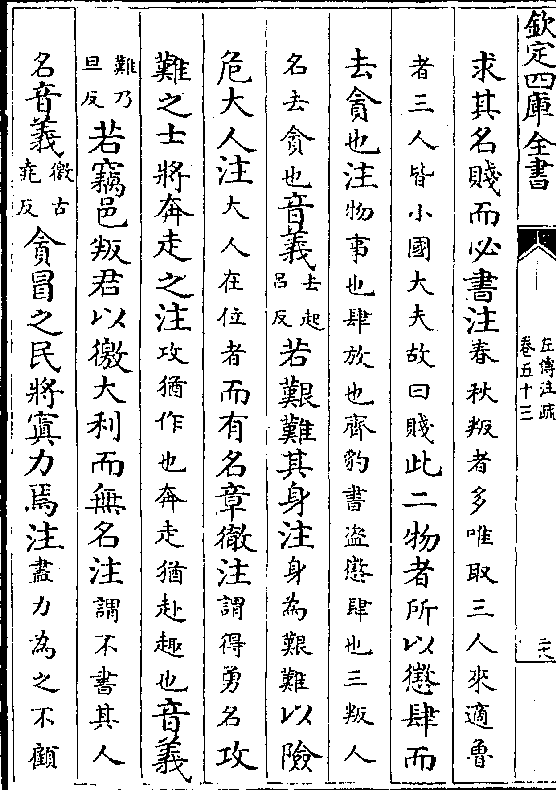 欽定四庫全書
左傳注疏
卷五十三
求其名賤而必書注春秋叛者多唯取三人來適魯
者三人皆小國大夫故曰賤此二物者所以懲肆而
去貪也注物事也肆放也齊豹書盜懲肆也三叛人
名去貪也音義去起呂反若艱難其身注身為艱難以險
危大人注大人在位者而有名章徹注謂得勇名攻
難之士將奔走之注攻猶作也奔走猶赴趣也音義
難乃旦反若竊邑叛君以徼大利而無名注謂不書其人
名音義徼古堯反貪冒之民將寘力焉注盡力為之不顧